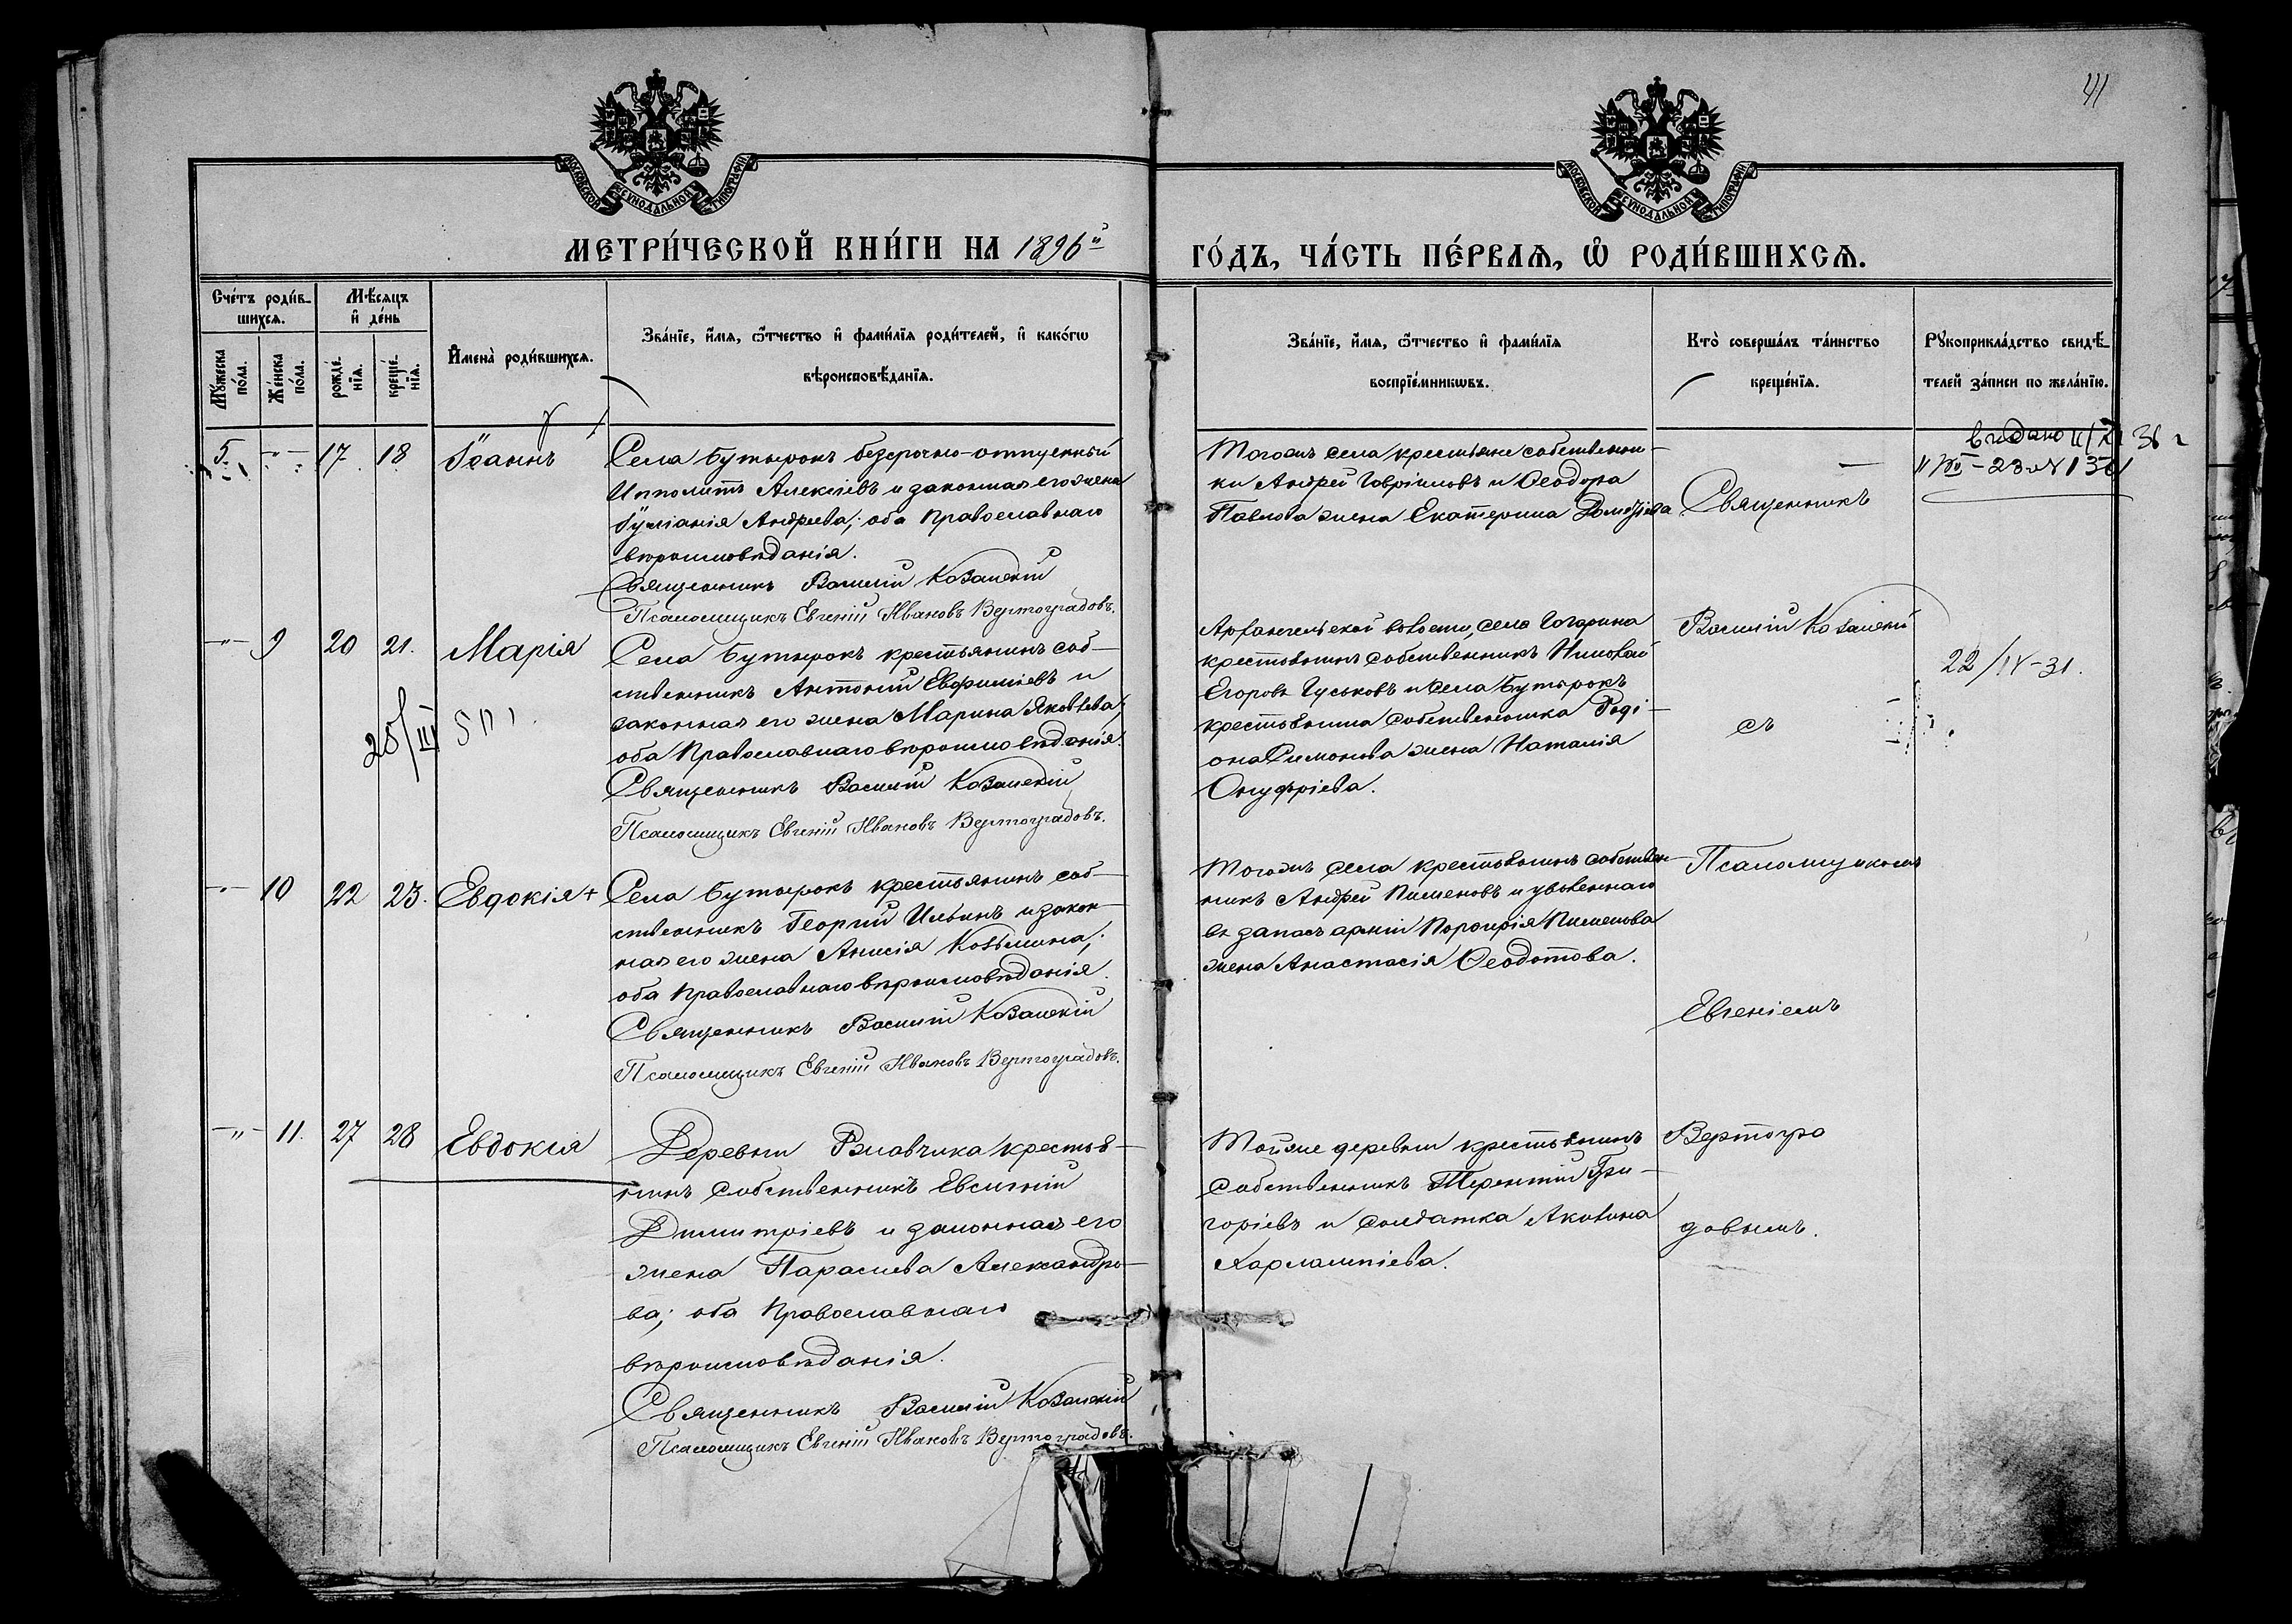 41
МОСКОВСКОЙ СѴНОДАЛЬНОЙ ТИПОГРАФІИ
МОСКОВСКОЙ СѴНОДАЛЬНОЙ ТИПОГРАФІИ
МЕТРИ́ЧЕСКОЙ КНИ́ГИ НА 1896й
ГО́ДЪ, ЧА́СТЬ ПЕ́РВАѦ, Ѡ҆ РОДИ́ВШИХСѦ.
Сче́тъ роди́в-
шихсѧ.
Мꙋ́жеска по́ла.
Же́нска по́ла.
Мѣ́сѧцъ
и҆ де́нь
рожде́-
нїѧ.
креще́-
нїѧ.
И҆мена̀ роди́вшихсѧ.
Зва́нїе, и҆́мѧ, ѻ҆́тчество и҆ фами́лїѧ роди́телей, и҆ како́гѡ
вѣроисповѣ́данїѧ.
Зва́нїе, и҆́мѧ, ѻ҆́тчество и҆ фами́лїѧ
воспрїе́мникѡвъ.
Кто̀ соверша́лъ та́инство
креще́нїѧ.
Рꙋкоприкла́дство свидѣ́-
телей за́писи по жела́нїю.
5. -"- 17. 18 Іоаннъ
Села Бутырокъ безсрочно-отпускный
Ипполитъ Алексіевъ и законная его жена
Іуліанія Андреева; оба Православнаго
вѣроисповѣданія.
Священникъ Василій Казанскій
Псаломщикъ Евгеній Ивановъ Вертоградовъ.
Тогожъ села крестьяне собственни-
ки Андрей Гавріиловъ и Ѳеодора
Павлова жена Екатерина
Священникъ
выдано 36 г
-"- 9 20 21. Марія
Села Бутырокъ крестьянинъ соб-
ственникъ Антоній Евфиміевъ и
законная его жена Марина Яковлева;
оба Православнаго вѣроисповѣданія.
Священникъ Василій Казанскій
Псаломщикъ Евгеній Ивановъ Вертоградовъ.
25/III
Архангельской волости, села Гагарина
крестьянинъ собственникъ Николай
Егоровъ Гуськовъ и села Бутырокъ
крестьянина собственника Роді-
она Симонова жена Наталія
Онуфріева.
Василій Казанскій
съ
22/IX-31.
-"- 10 22 23. Евдокія +
Села Бутырокъ крестьянинъ соб-
ственникъ Георгій Ильинъ и закон-
ная его жена Анисія Козьмина;
оба Православнаго вѣроисповѣданія.
Священникъ Василій Казанскій
Псаломщикъ Евгеній Ивановъ Вертоградовъ.
Тогожъ села крестьянинъ собствен-
никъ Андрей Пименовъ и уволеннаго
въ запасъ арміи Порфирія Пименова
жена Анастасія Ѳеодотова.
Псаломщикомъ
Евгеніемъ
-"- 11. 27 28 Евдокія
Деревни Ржавчика крестья-
нинъ собственникъ Евсигній
Димитріевъ и законная его
жена Параскева Александро-
ва; оба Православнаго
вѣроисповѣданія.
Священникъ Василій Казанскій
Псаломщикъ Евгеній Ивановъ Вертоградовъ.
Тойже деревни крестьянинъ
собственникъ Терентій Гри-
горіевъ и солдатка Акилина
Харлампіева.
Вертогра
довымъ.